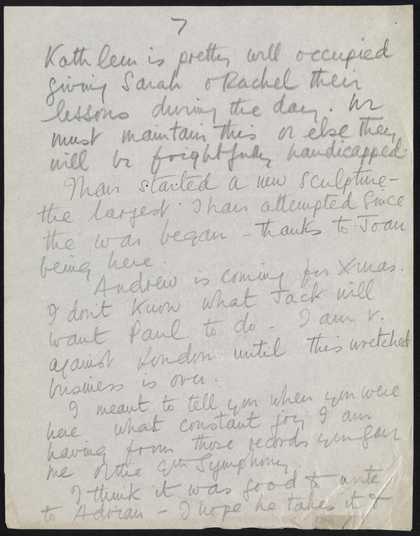 7
Kathleen is pretty well occupied
giving Sarah & Rachel their
lessons during the day. We
must maintain this or else they
will be frightfully handicapped.
I have started a new sculpture –
the largest I have attempted since
the war began – thanks to Joan
being here.
Andrew is coming for Xmas.
I don't know what Jack will
want Paul to do. I am v.
against London until this wretched
business is over.
I meant to tell you when you were
here what constant joy I am
having from those records you gave
me of the 9th Symphony.
I think it was good to write
to Adrian – I hope he takes it &